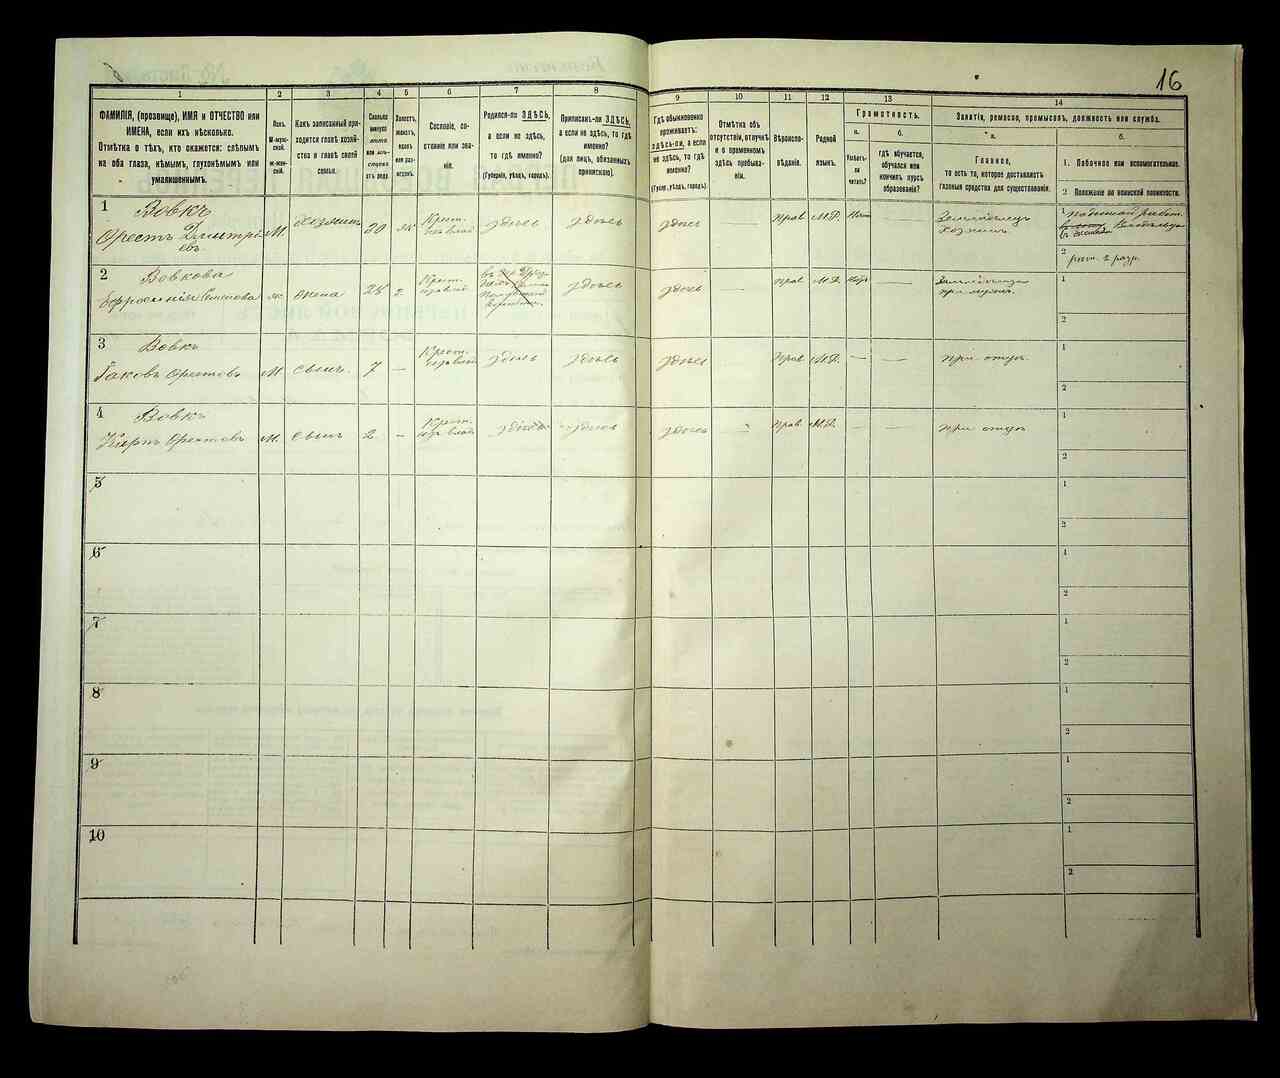 16
1
2
3
4
5
6
7
8
9
10
11
12
13
14
ФАМИЛІЯ, (прозвище), ИМЯ и ОТЧЕСТВО или
ИМЕНА, если ихъ нѣсколько.
Отмѣтка о тѣхъ, кто окажется: слѣпымъ
на оба глаза, нѣмымъ, глухонѣмымъ или
умалишеннымъ.
Полъ.
М-мужской.
Ж-женской.
Какъ записанный при-
ходится главѣ хозяй-
ства и главѣ своей
семьи.
Сколько
минуло
лѣтъ
или мѣ-
сяцевъ
отъ роду.
Холостъ,
женатъ,
вдовъ
или раз-
веденъ.
Сословіе, со-
стояніе или зва-
ніе.
Родился-ли ЗДѢСЬ,
а если не здѣсь,
то гдѣ именно?
(Губернія, уѣздъ, городъ).
Приписанъ-ли ЗДѢСЬ,
а если не здѣсь, то гдѣ
именно?
(для лицъ, обязанныхъ
припискою).
Гдѣ обыкновенно
проживаетъ:
ЗДѢСЬ-ли, а если
не здѣсь, то гдѣ
именно?
(Губер., уѣздъ, городъ).
Отмѣтка объ
отсутствіи, отлучкѣ
и о временномъ
здѣсь пребыва-
ніи.
Вѣроиспо-
вѣданіе.
Родной
языкъ.
Грамотность.
а.
Умѣетъ-
ли
читать?
б.
гдѣ обучается,
обучался или
кончилъ курсъ
образованія?
Занятіе, ремесло, промыселъ, должность или служба.
а.
Главное,
то есть то, которое доставляетъ
главныя средства для существованія.
б.
1. Побочное или вспомогательное.
2 Положеніе по воинской повинности.
1
Вовкъ
Орестъ Дмитрі
евъ
М.
хозяинъ
30
Крест.
здѣсь
здѣсь
здѣсь
—
Прав
М.Р.
Земледѣлецъ
хозяинъ
1
2
ратн. 2 разр.
2
Вовкова
Ефросинія Семенова
ж.
жена
Крест.
здѣсь
здѣсь
—
Прав
М.Р.
при мужѣ.
1
2
3
Вовкъ
Яковъ Орестовъ
М.
сынъ
7
—
Крест.
здѣсь
здѣсь
здѣсь
—
Прав
М.Р.
—
—
при отцѣ.
1
2
4
Вовкъ
Орестовъ
М.
сынъ
2
—
Крест.
здѣсь
здѣсь
здѣсь
—
Прав
М.Р.
—
—
при отцѣ
1
2
5
1
2
6
1
2
7
1
2
8
1
2
9
1
2
10
1
2